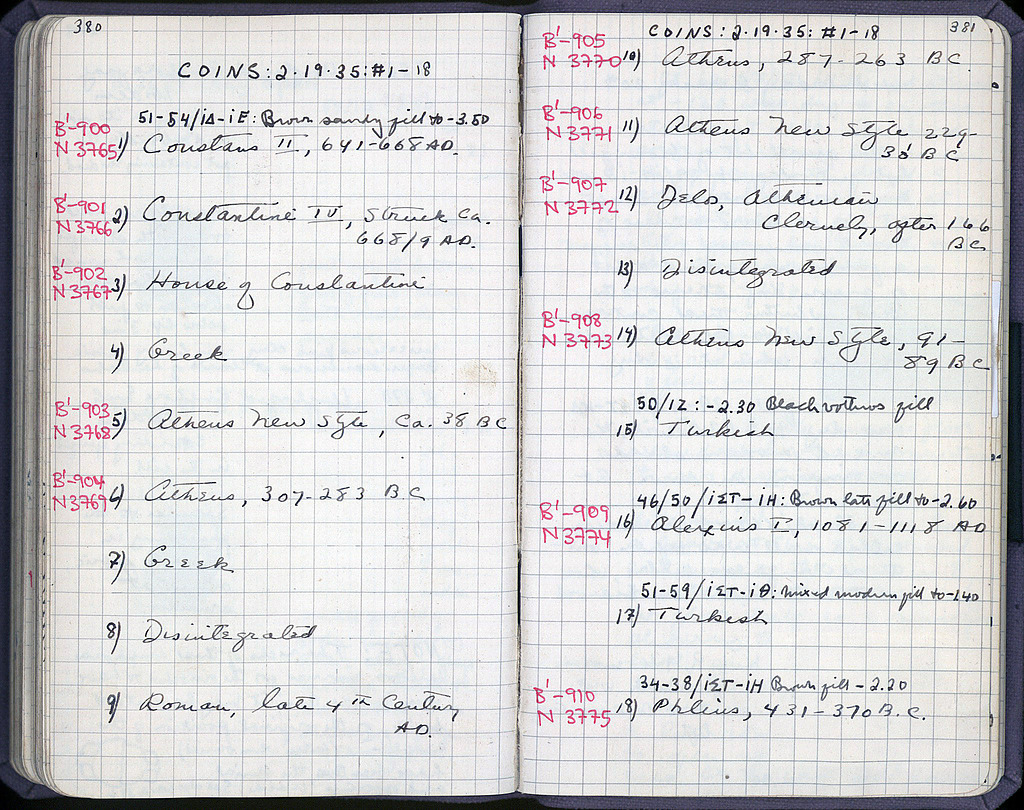 380
COINS: 2·19·35: #1-18
51-54/ιΔ-ιΕ: Brown sandy fill to -3.50
B'-900
N 3765 1) Constans II, 641-668 AD.
B'-901
N 3766 2) Constantine IV, struck ca.
668/9 AD.
B'-902
N 3767 3) House of Constantine
4) Greek
B'-903
N 3768 5) Athens New Style, Ca. 38 BC
B'-904
N 3769 6) Athens, 307-283 BC
7) Greek
8) Disintegrated
9) Roman, late 4th Century
AD.
381
COINS: 2·19·35: #1-18
B'-905
N 3770 10) Athens, 287-263 BC.
B'-906
N 3771 11) Athens New Style 229-
30 BC
B'-907
N 3772 12) Delos, Athenian
Cleruchy, after 166
BC
13) Disintegrated
B'-908
N 3773 14) Athens New Style, 91-
89 BC
50/ΙΖ: -2.30 Black vothros fill
15) Turkish
46/50/ιΣΤ-ιΗ: Brown late fill to -2.60
B'-909
N 3774 16) Alexius I, 1081-1118 AD
51-59/ιΣΤ-ιΘ: Mixed modern fill to -1.40
17) Turkish
34-38/ιΣΤ-ιΗ Brown fill -2.20
B'-910
N 3775 18) Phlius, 431-370 B.C.